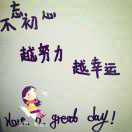 不忘初心
越努力
越幸运
Have a great day!